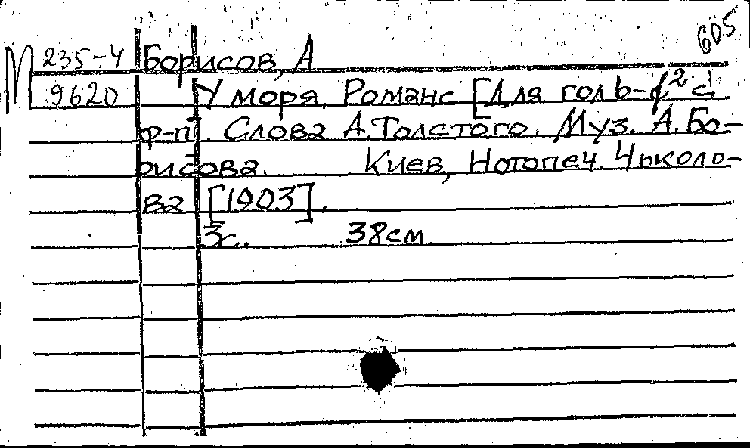 605
М 235-4 Борисов, А
9620 У моря. Романс [Для гол. с
ф-п]. Слова А. Толстого. Муз. А. Бо-
рисова. Киев, Нотопеч. Чоколо-
ва [1903].
3с. 38см